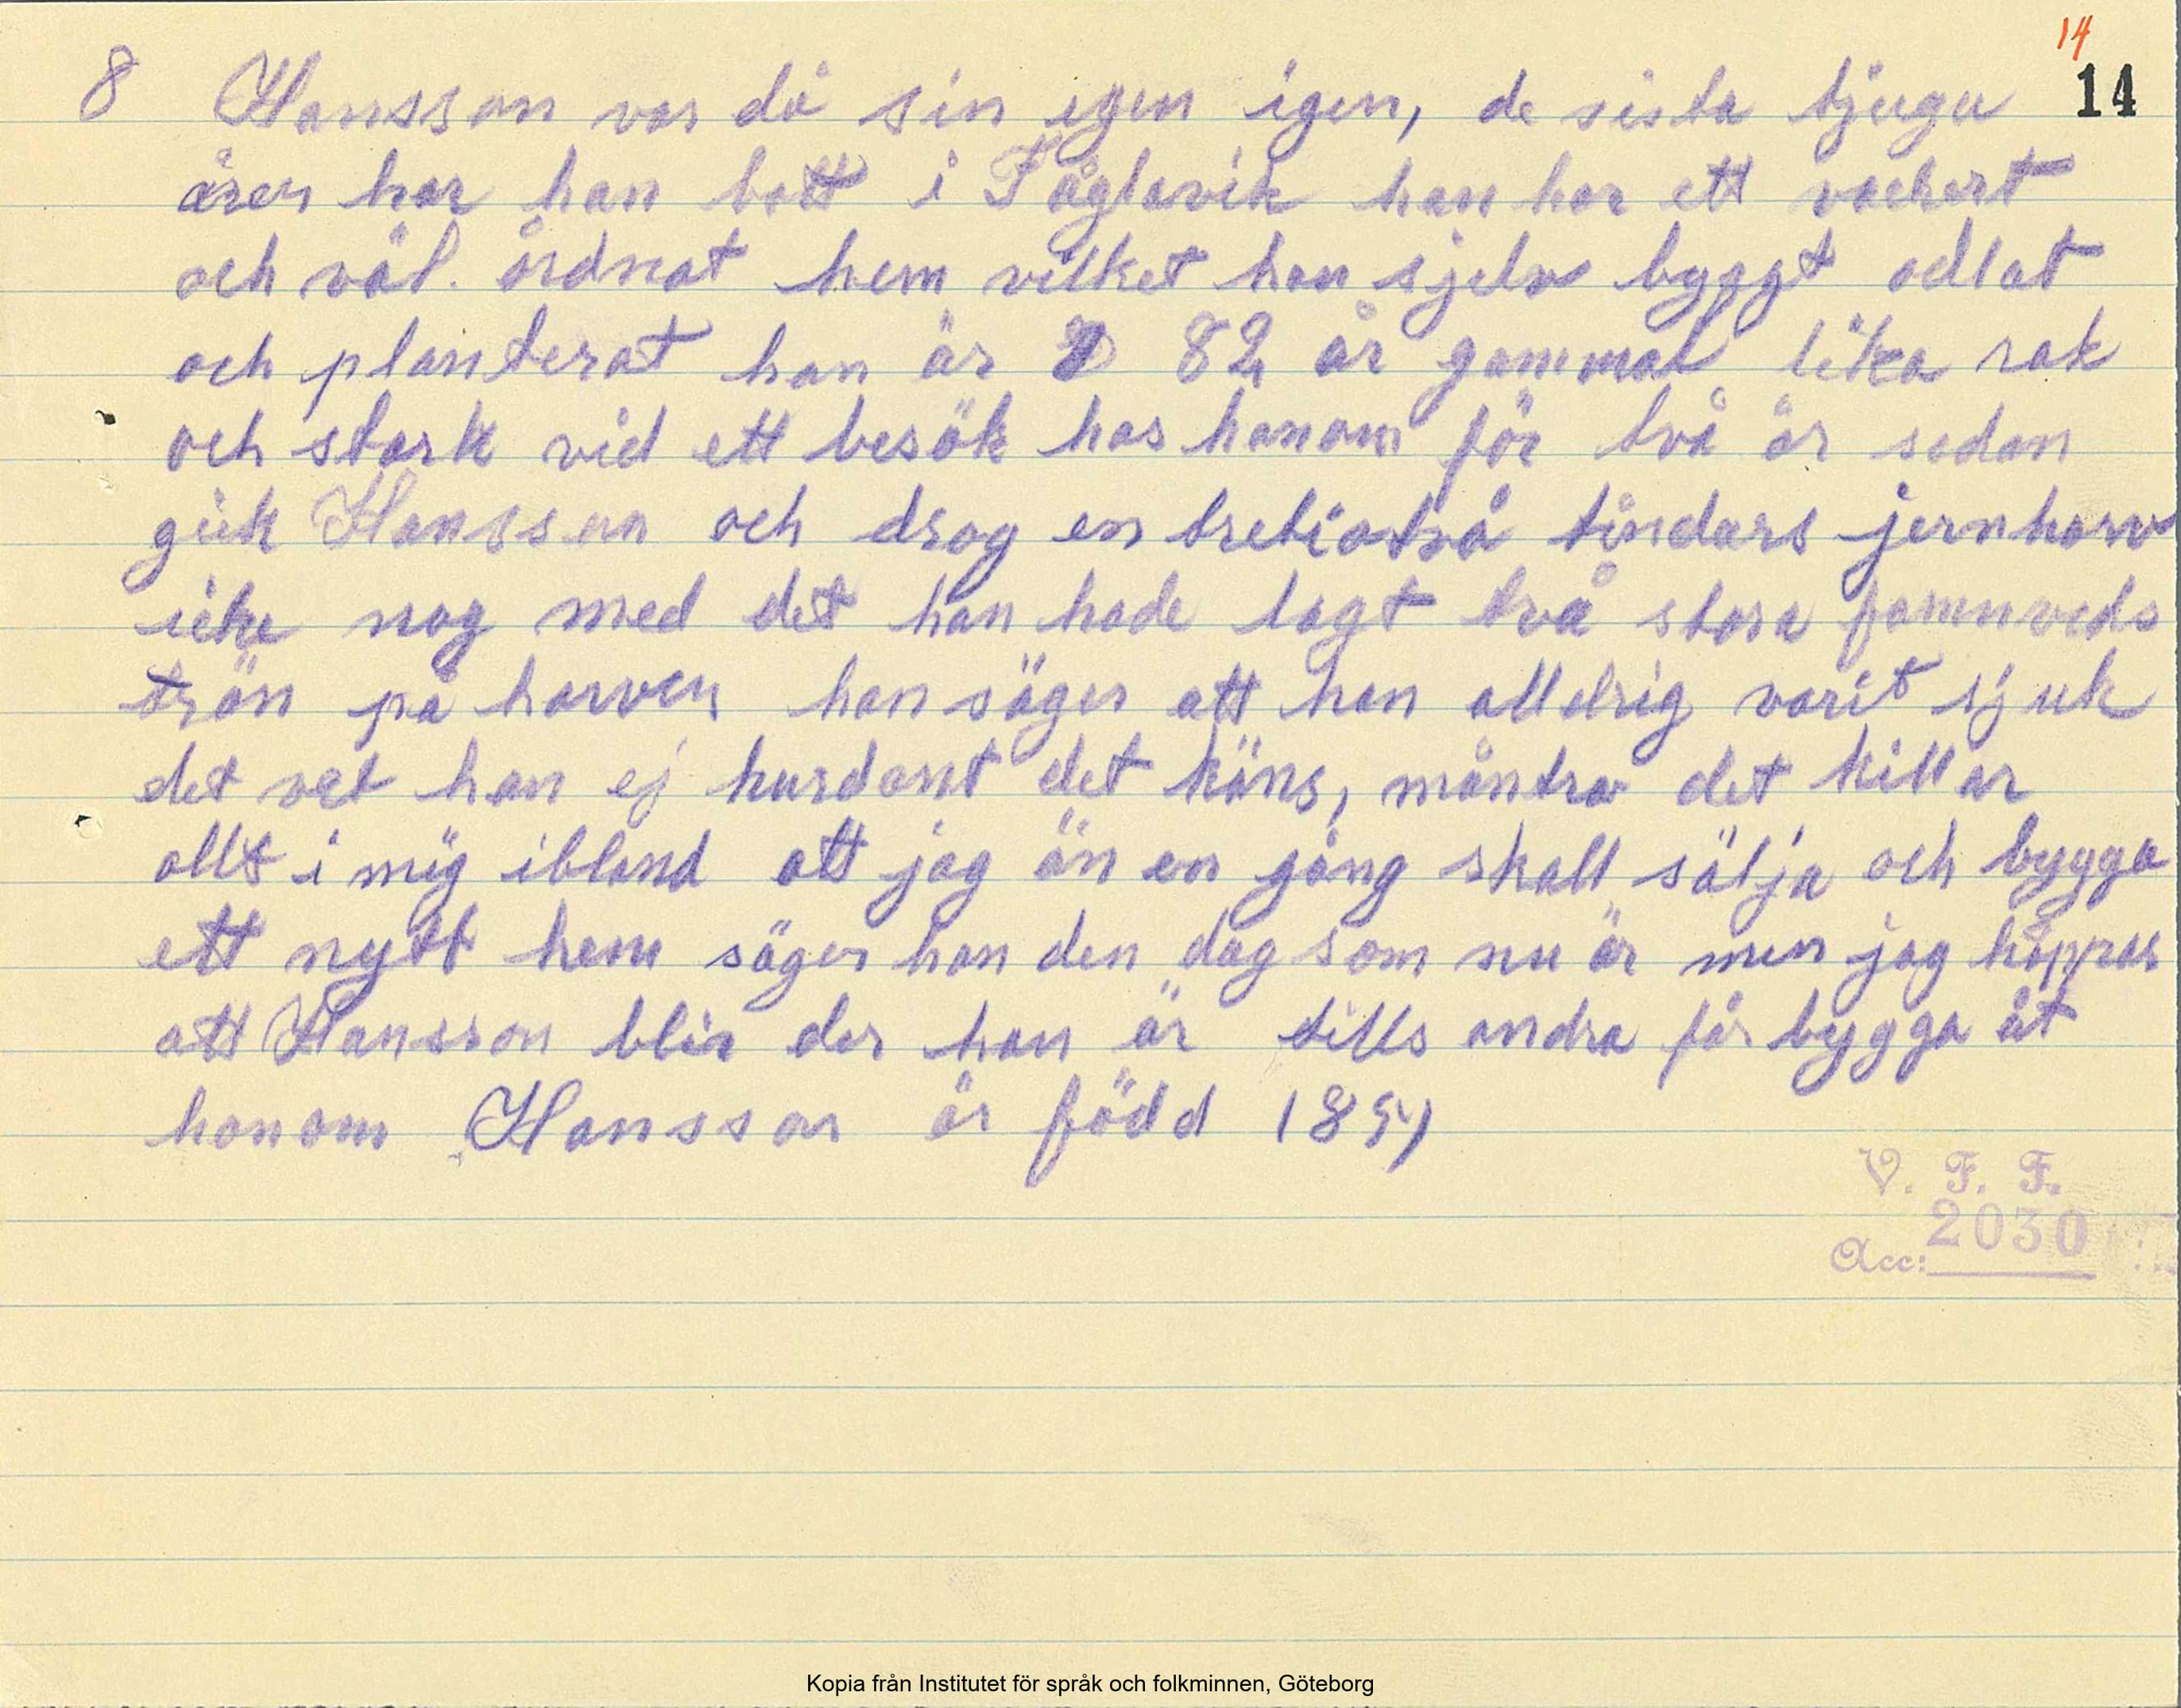 14
8 Hansson var då sin egen igen, de sista tjugu 14
åren har han bott i Fåglavik han har ett vackert
och väl. ordnat hem vilket han sjelv byggt odlat
och planterat han är 82 år gammal lika rak
och stark vid ett besök hos honom för två år sedan
gick Hansson och drog en tretiotvå tindars jernharv
icke nog med det han hade lagt två stora famnveds
trän på harven han säger att han alldrig varit sjuk
det vet han ej hurdant det käns, måntro det killar
allt i mig ibland att jag än en gång skall sälja och bygga
ett nytt hem säger han den dag som nu är men jag hoppas
att Hansson blir der han är tills andra får bygga åt
honom Hansson är född
V. F. F.
Acc: 2030
Kopia från Institutet för språk och folkminnen, Göteborg